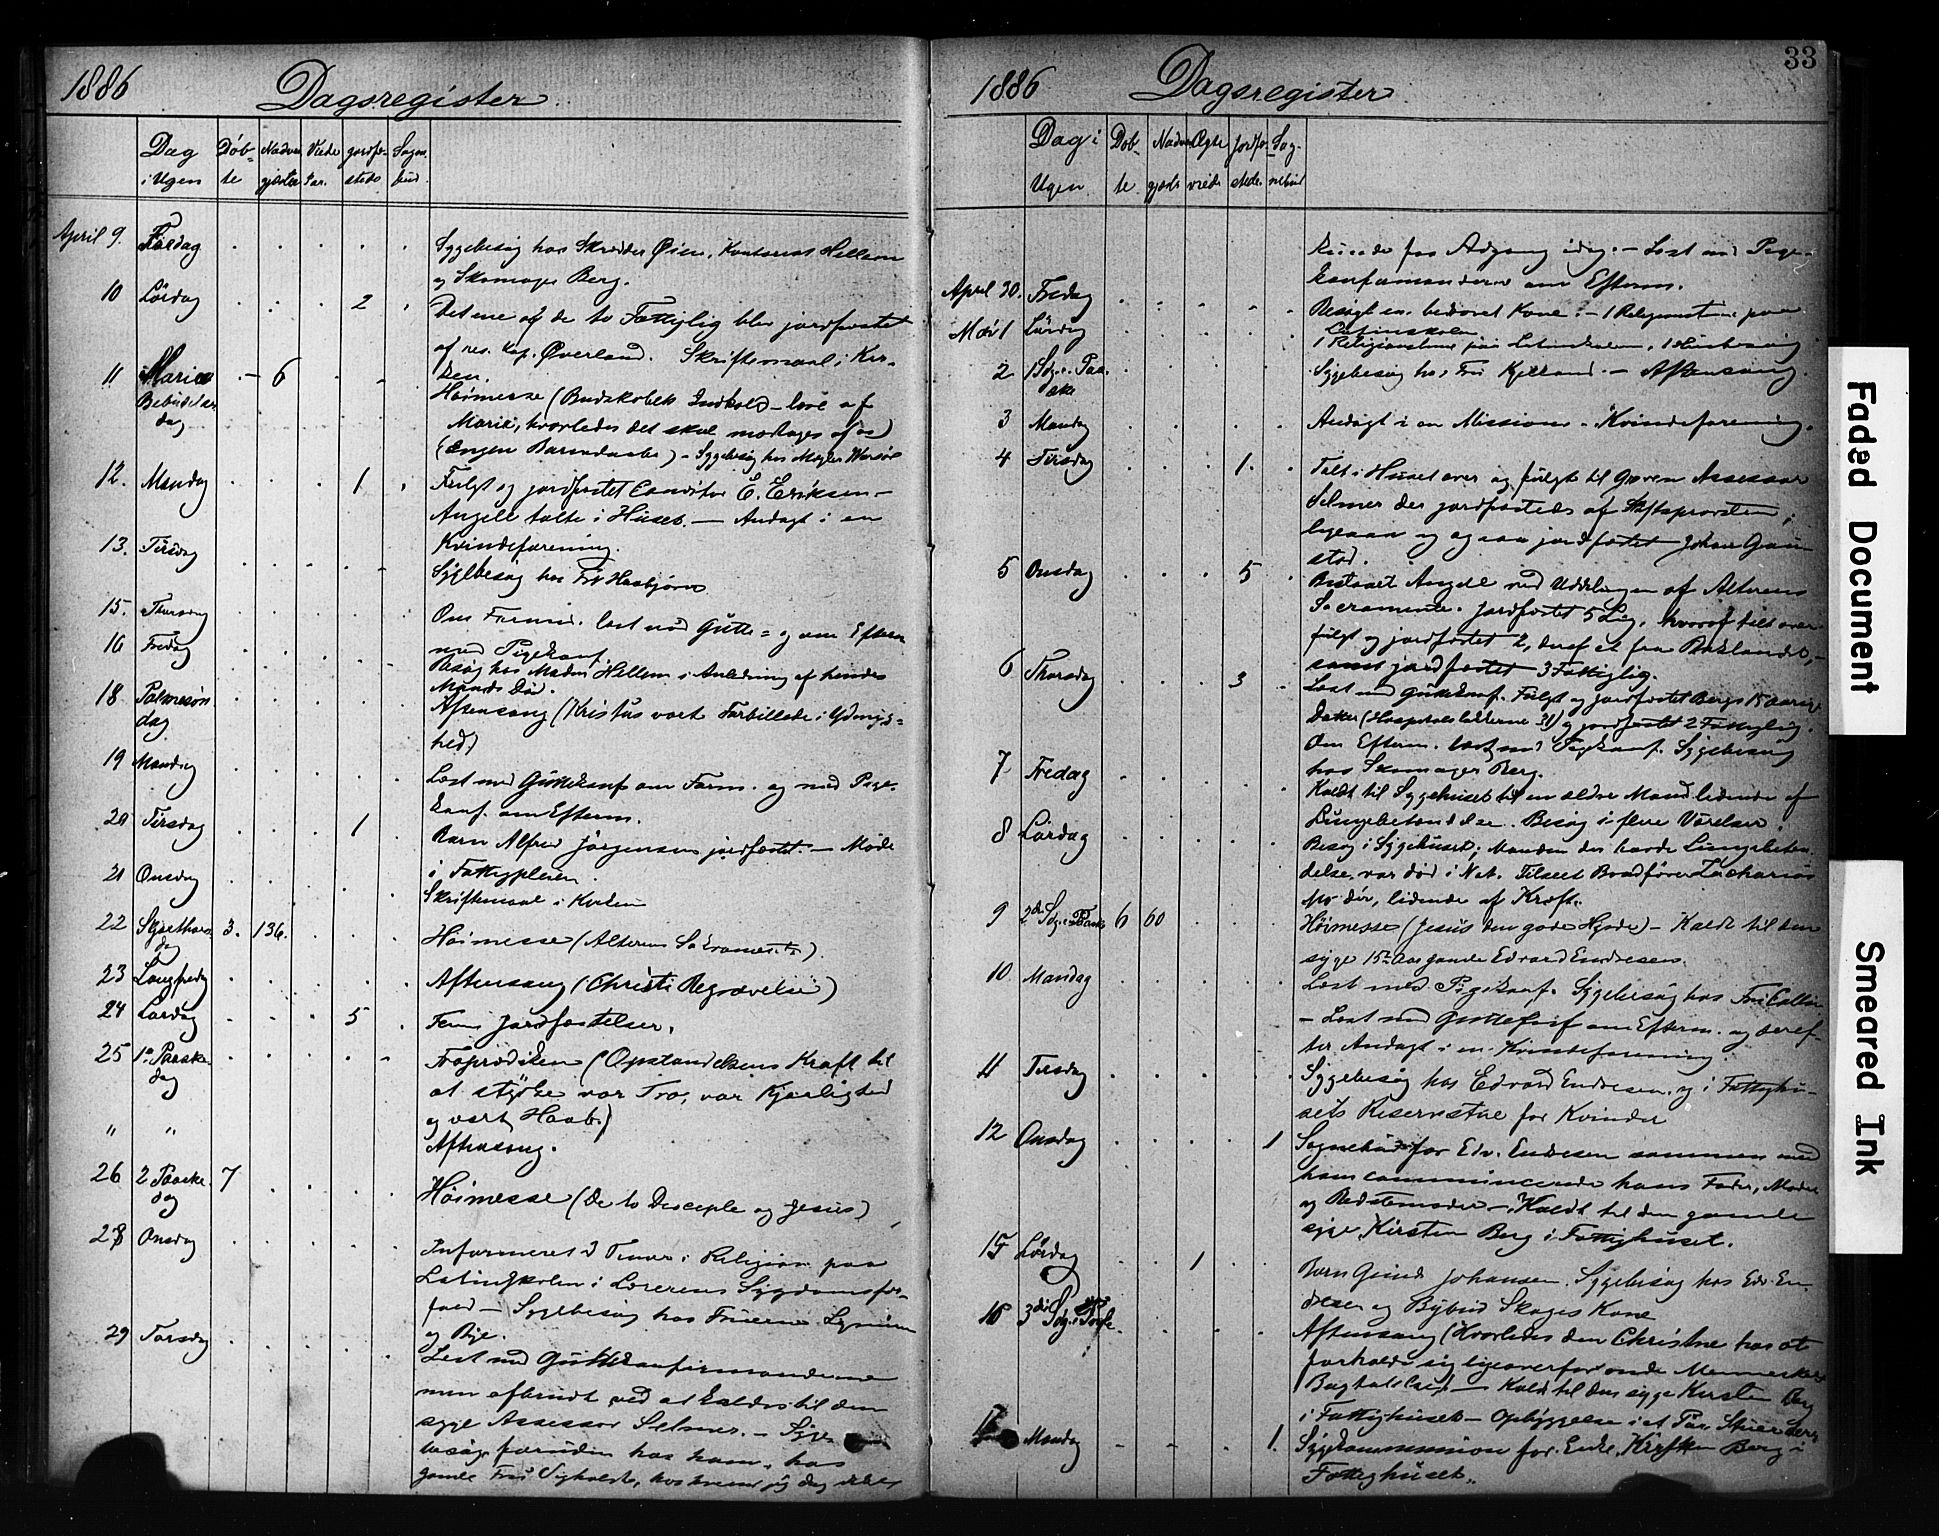 1886 Dagsregister
Dag i Ugen Døb-te Nadver gjæster Viede Par. jordfæ-stede Sogne bud.
April 9. Fredag
Sygebesøg hos Skrædder Øien, Kontorist Hellem
og Skomager Berg.
10 Lørdag 2
Det ene af de to Fattiglig blev jordfæstet
af res. Kap. Øverland. Skriftemaal i Kir-
ken.
11 Mariæ Bebudelses dag 6
Høimesse (Budskabets Indhold - lære af
Marie, hvorledes det skal modtages af os)
(Ingen Barnedaabe) - Sygebesøg hos Mægler
12. Mandag 1
Fulgt og jordfæstet Conditor E. Eriksen -
Angell talte i Huset. - Andagt i en
Kvindeforening.
13. Tirsdag
Sygebesøg hos Frk Hasbjørn
15. Thorsdag
Om Formid. læst med Gutte- og om Efterm
med Pigekonf.
16 Fredag
Besøg hos Madm Hellem i Anledning af hendes
Mands Død.
18 Palmesøn dag
Aftensang (Kristus vort Forbillede i Ydmyg-
hed)
19 Mandag
Læst med Guttekonf om Form. og med Pige-
konf. om Efterm.
20 Tirsdag 1
Barn Alfred Jørgensen jordfæstet. - Møde
i Fattigpleien.
21 Onsdag
Skriftemaal i Kirken
22 Skjærthors dag 3. 136.
Høimesse (Alterens Sakramente).
23 Langfredag
Aftensang (Christi Begravelse)
24 Lørdag 5
Fem Jordfæstelser.
25 1ste Paaske dag
Froprædiken (Opstandelsens Kraft til
at styrke vor Tro, vor Kjærlighed
og vort Haab.)
" "
Aftensang.
26 2 Paaske dag 7
Høimesse (De to Disciple og Jesus)
28 Onsdag
Informeret 3 Timer i Religion paa
Latinskolen i Lærerens Sygdomsfor-
fald - Sygebesøg hos Fruerne Lysholm
og Bye.
29 Torsdag
Læst med Guttekonfirmanderne
men afbrudt ved at kaldes til den
syge Assessor Selmer. - Syge
besøg foruden hos ham, hos
gamle Fru Sigholdt, hos hvem jeg dog ikke
33
1886 Dagsregister
Dag i Ugen Døb-te Nadver gjæster Ægte viede Jordfæ-stede Sog-nebud
kunde faa Adgang idag. - Læst med Pige-
konfirmanderne om Efterm.
April 30. Fredag
Besøgt en bedøvet Kone. - 1 Religionstime paa
Latinskolen
Mai 1 Lørdag
1 Religionstime paa Latinskolen,
2 1 Sdg. e. Paa-ske
Sygebesøg hos Fru Kjelland. - Aftensang.
3 Mandag
Andagt i en Missions-Kvindeforening.
4 Tirsdag 1.
Talt i Huset over og fulgt til Graven Assessor
Selmer der jordfæstedes af Stiftsprovsten;
ligesaa og ogsaa jordfæstet Johan Gau-
stad.
5 Onsdag 5
Bistaaet Angell ved Uddelingen af Alterens
Sacramente. Jordfæstet 5 Lig, hvoraf talt over
fulgt og jordfæstet 2, deraf et fra Baklandet,
samt jordfæstet 3 Fattiglig.
6 Thorsdag 3
Læst med Guttekonf. Fulgt og jordfæstet Bergs 15 aarige
Datter (Hospitalsløkkerne 31) og jordfæstet 2 Fattiglig.
Om Efterm. læst med Pigekonf. Sygebesøg
hos Skomager Berg.
7 Fredag
Kaldt til Sygehuset til en ældre Mand lidende af
Lungebetændelse. Besøg i flere Værelser.
8 Lørdag
Besøg i Sygehuset; Manden der havde Lungebetæn
delse, var død i Nat. Tilseet Brødfører Zacharias
Mo der, lidende af Kræft.
9 2den Sdg. e. Paaske 6 60
Høimesse (Jesus den gode Hyrde) - Kaldt til den
syge 15 Aar gamle Edvard Endresen.
10 Mandag
Læst med Pigekonf. Sygebesøg hos Fru Collin
- Læst med Guttekonf om Efterm. og deref-
ter Andagt i en Kvindeforening.
11 Tirsdag
Sygebesøg hos Edvard Endresen, og i Fattighu-
sets Reservestue for Kvinder
12 Onsdag 1
Sognebud for Edv. Endresen sammen med
ham communicerede hans Fader, Moder
og Bedstemoder - Kaldt til den gamle
syge Kirsten Berg i Fattighuset.
15 Lørdag 1
Jørn Johansen. Sygebesøg hos Edv. En-
dresen og Bybud Skoges Kone
16 3die Sdg. e. Paaske.
Aftensang (Hvorledes den Christne har at
forholde sig ligeoverfor onde Menneskers
Bagtalelser) - Kaldt til den syge Kirsten Berg
i Fattighuset - Opbyggelse i et Par Stuer der
Mandag 1.
Sygekommunion for Enke Kirsten Berg i
Fattighuset.
Faded Document
Smeared Ink